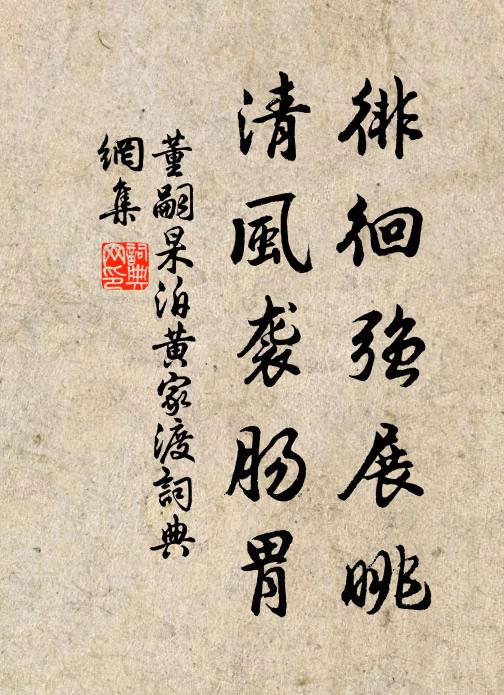 徘徊強展眺
清風袭肠胃
董嗣杲泊黄家渡詞典
網集
詞典网印